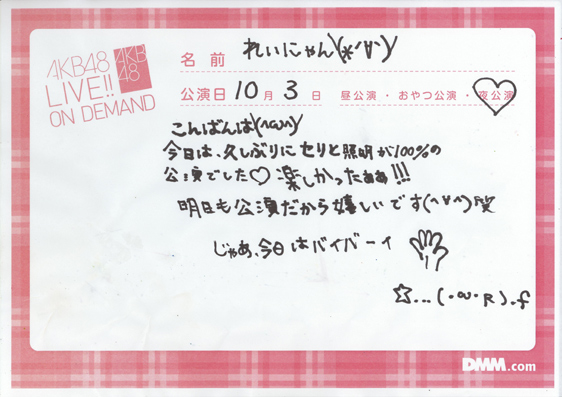 AKB48
LIVE!!
ON DEMAND
AKB
48
名前 れいにゃん\(*´∀`)/
公演日 10月 3日 昼公演・おやつ公演・夜公演
こんばんは\(^ω^)/
今日は、久しぶりにセリと照明が100%の
公演でした♡楽しかったぁぁ!!!
明日も公演だから嬉しいです(^∀^)笑
じゃあ、今日はバイバーイ
☆...(・ω・R).f
DMM.com